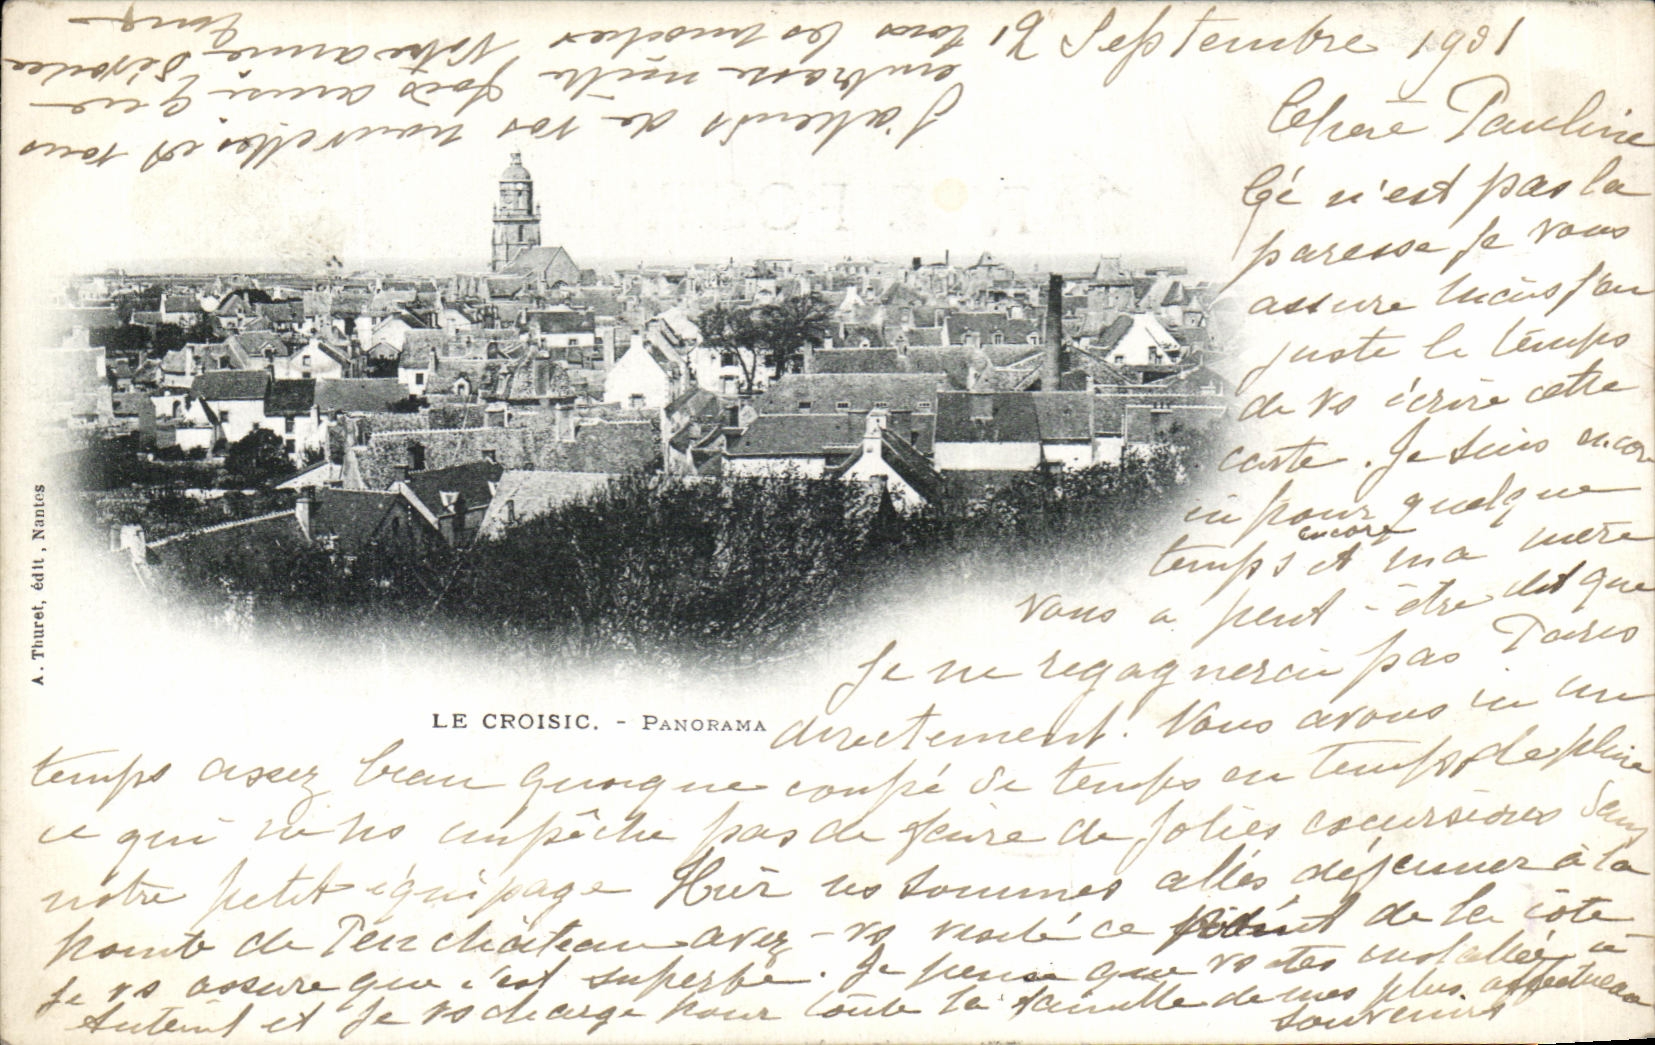 12 Septembre 1901
Chère Pauline
Ce n'est pas la
paresse je vous
assure mais j'ai
juste le temps
de vs écrire cette
carte. Je suis encore
ici pour quelque
temps et ma mère
encore
vous a peut-être dit que
je ne regagnerai pas Paris
directement. Nous avons ici un
temps assez beau quoique coupé de temps en temps de pluie
ce qui ne ns empêche pas de faire de jolies excursions dans
notre petit équipage Hier ns sommes allés déjeuner à la
pointe de Penchateau avez-vs visité ce point de la côte
je vs assure que c'est superbe. Je pense que vs êtes installée à
Auteuil et je vs charge pour toute la famille de mes plus affectueux
souvenirs
J'attends de vos nouvelles et vous
embrasse mille fois ainsi que
tous les mioches Votre amie dévouée
LE CROISIC. - PANORAMA
A. Thuret, édit., Nantes